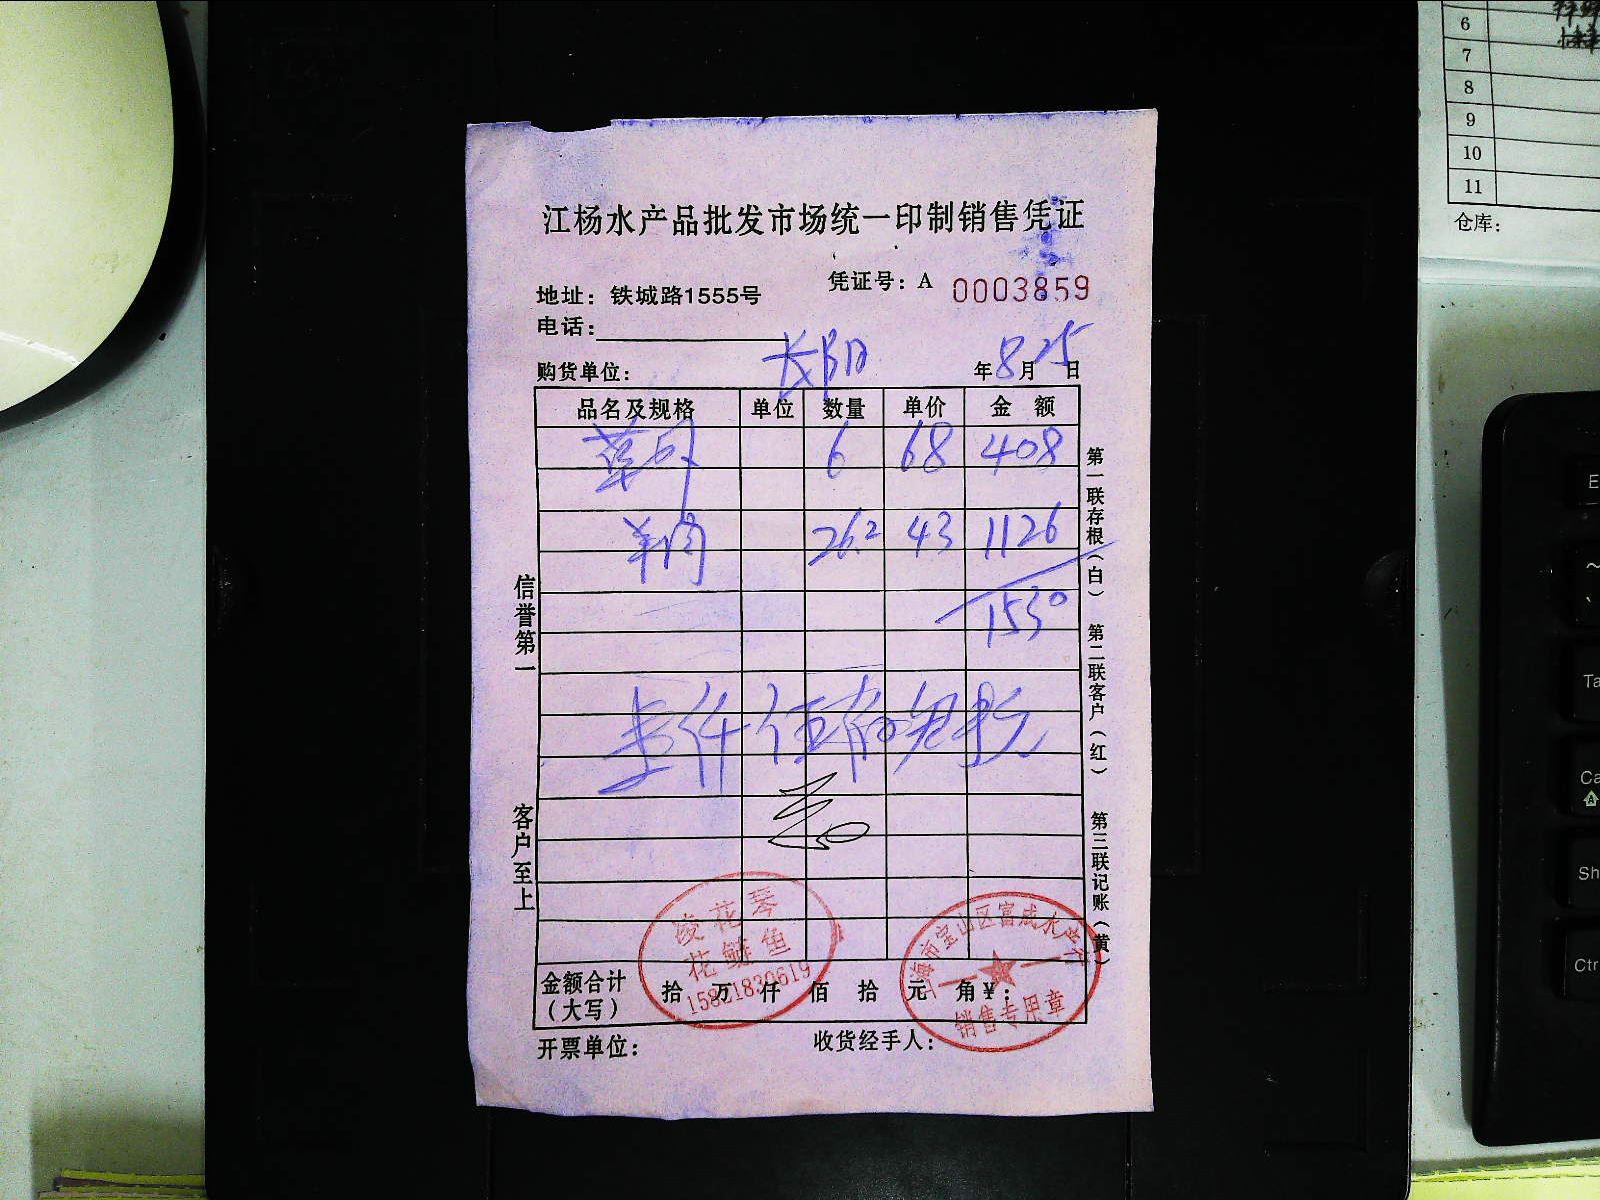 6
7
8
9
10
11
仓库：
江杨水产品批发市场统一印制销售凭证
凭证号：A 0003859
地址：铁城路1555号
电话：
购货单位： 长阳 年8月25日
品名及规格 单位 数量 单价 金额
6 68 408
羊肉 26.2 43 1126
1530
壹仟伍佰叁拾元
信誉第一
客户至上
第一联存根（白）
第二联客户（红）
第三联记账（黄）
凌花琴
花鲢鱼
15821830619
上海市宝山区富成水产行
销售专用章
金额合计（大写） 拾 万 仟 佰 拾 元 角 ¥：
开票单位： 收货经手人：